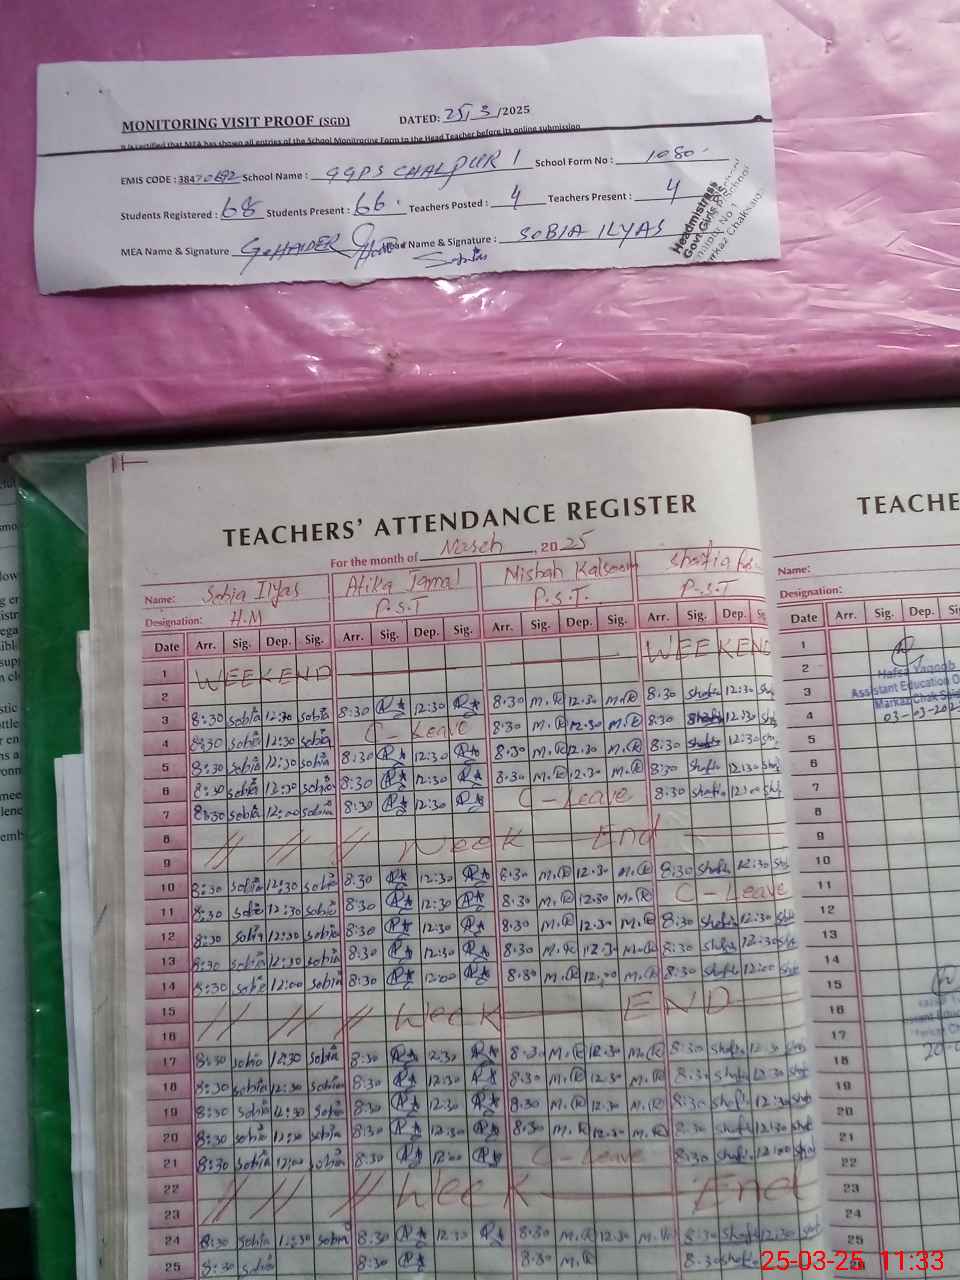 MONITORING VISIT PROOF (SGD) DATED: 25/3/2025
It is certified that MEA has shown all entries of the School Monitroring Form to the Head Teacher before its online submission
EMIS CODE : 38470692 School Name : GGPS CHALPUR 1 School Form No : 1080
Students Registered : 68 Students Present : 66 Teachers Posted : 4 Teachers Present : 4
MEA Name & Signature G.HAIDER Name & Signature : SOBIA ILYAS
Sobia
Headmistress
Govt. Girls P/School
No. 1
TEACHERS' ATTENDANCE REGISTER
For the month of March, 2025
Name: Sobia Ilyas Atika Iqmal Misbah Kalsoom Shafia
Designation: H.M P.S.T P.S.T. P.S.T
Date Arr. Sig. Dep. Sig. Arr. Sig. Dep. Sig. Arr. Sig. Dep. Sig. Arr. Sig. Dep. Sig.
1 WEEKEND WEEKEND
2
3 8:30 sobia 12:30 sobia 8:30 12:30 8:30 M.K 12:30 M.K 8:30 shafi 12:30 sh
4 8:30 sobia 12:30 sobia C-Leave 8:30 M.K 12:30 M.K 8:30 shafi 12:30 sh
5 8:30 sobia 12:30 sobia 8:30 12:30 8:30 M.K 12:30 M.K 8:30 shafi 12:30 sh
6 8:30 sobia 12:30 sobia 8:30 12:30 8:30 M.K 12:30 M.K 8:30 shafi 12:30 sh
7 8:30 sobia 12:00 sobia 8:30 12:30 C-Leave 8:30 shafi 12:00 sh
8 // // // Week End
9
10 8:30 sobia 12:30 sobia 8:30 12:30 8:30 M.K 12:30 M.K 8:30 shafi 12:30 sh
11 8:30 sobia 12:30 sobia 8:30 12:30 8:30 M.K 12:30 M.K C-Leave
12 8:30 sobia 12:30 sobia 8:30 12:30 8:30 M.K 12:30 M.K 8:30 shafi 12:30 sh
13 8:30 sobia 12:30 sobia 8:30 12:30 8:30 M.K 12:30 M.K 8:30 shafi 12:30 sh
14 8:30 sobia 12:00 sobia 8:30 12:00 8:30 M.K 12:00 M.K 8:30 shafi 12:00 sh
15 // // // Week END
16
17 8:30 sobia 12:30 sobia 8:30 12:30 8:30 M.K 12:30 M.K 8:30 shafi 12:30 sh
18 8:30 sobia 12:30 sobia 8:30 12:30 8:30 M.K 12:30 M.K 8:30 shafi 12:30 sh
19 8:30 sobia 12:30 sobia 8:30 12:30 8:30 M.K 12:30 M.K 8:30 shafi 12:30 sh
20 8:30 sobia 12:30 sobia 8:30 12:30 8:30 M.K 12:30 M.K 8:30 shafi 12:30 sh
21 8:30 sobia 12:00 sobia 8:30 12:00 C-Leave 8:30 shafi 12:00 sh
22 // // // Week End
23
24 8:30 sobia 12:30 sobia 8:30 12:30 8:30 M.K 12:30 M.K 8:30 shafi 12:30 sh
25 8:30 sobia 8:30 8:30 M.K 8:30 shafi
TEACHE
Name:
Designation:
Date Arr. Sig. Dep. S
1
2
3
4
5
6
7
8
9
10
11
12
13
14
15
16
17
18
19
20
21
22
23
24
25
Hafsa Yaqoob
Assistant Education O
Markaz Chak
03-03-202
25-03-25 11:33